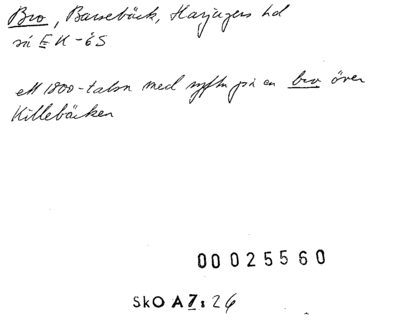 Bro, Barsebäck, Harjagers hd
ett 1800-talsn med syftn på en bro över
Killebäcken
00 025560
SkO A7:26